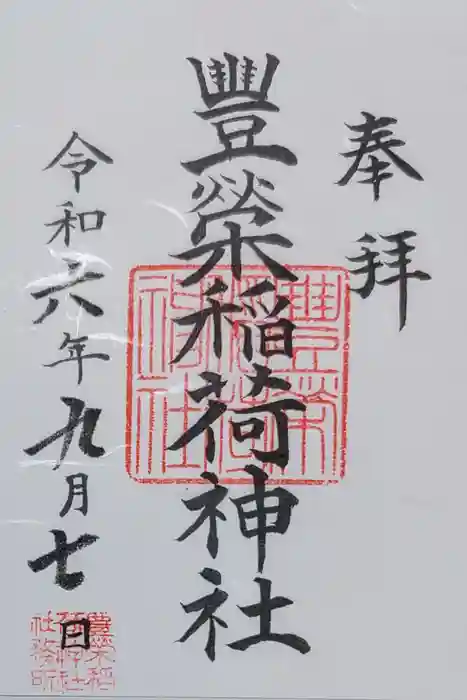 奉拝
豐榮稲荷神社
令和六年九月七日
豊栄稲荷神社
豊栄稲荷神社社務所